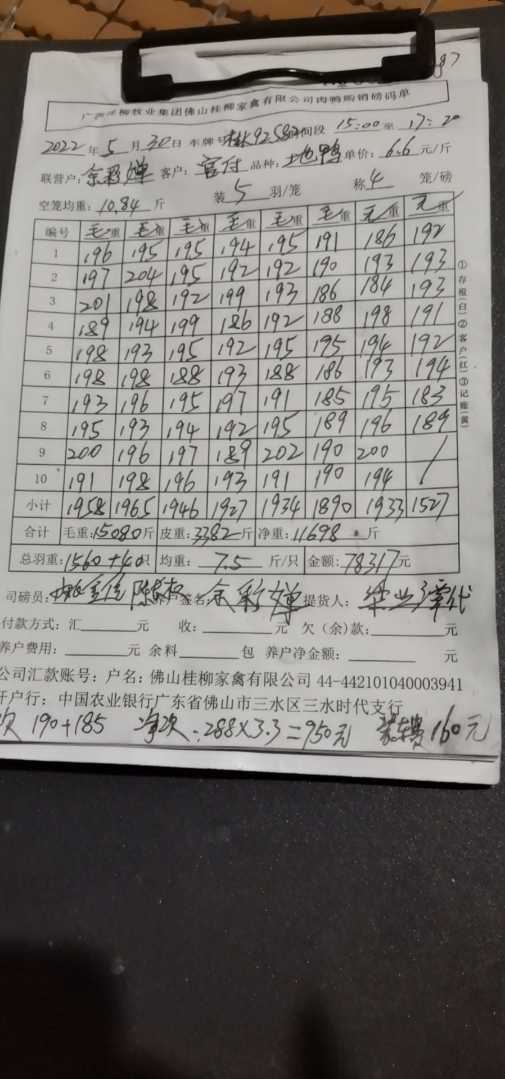 87
柳牧业集团佛山桂柳家禽有限公司肉鸭购销磅码单
2022年5月30日 车牌号 9258 时间段 15:00至17:20
联营户: 余彩婵 客户: 官付 品种: 土地鸭 单价: 6.6元/斤
空笼均重: 10.84斤 装5羽/笼 称4笼/磅
编号 毛重 毛重 毛重 毛重 毛重 毛重 毛重 毛重
1 196 195 195 194 195 191 186 192
2 197 204 195 192 192 190 193 193
3 201 198 192 199 193 186 184 193
4 189 194 199 186 192 188 198 191
5 198 193 195 192 195 195 194 192
6 198 198 188 193 188 186 193 194
7 193 196 195 197 191 185 195 183
8 195 193 194 192 195 189 196 189
9 200 196 197 189 202 190 200 /
10 191 198 196 193 191 190 194 /
小计 1958 1965 1946 1927 1934 1890 1933 1527
合计 毛重:15080斤 皮重:3382斤 净重:11698斤
总羽重:1560+40只 均重: 7.5 斤/只 金额: 78317元
司磅员: 签名: 余彩婵 提货人:
付款方式: 汇 元 收: 元 欠(余)款: 元
养户费用: 元 余料 包 养户净金额: 元
公司汇款账号: 户名: 佛山桂柳家禽有限公司 44-442101040003941
开户行: 中国农业银行广东省佛山市三水区三水时代支行
次 190+185 净次:288×3.3=950元 装车费160元
①存根(白)②客户(红)③记账(黄)